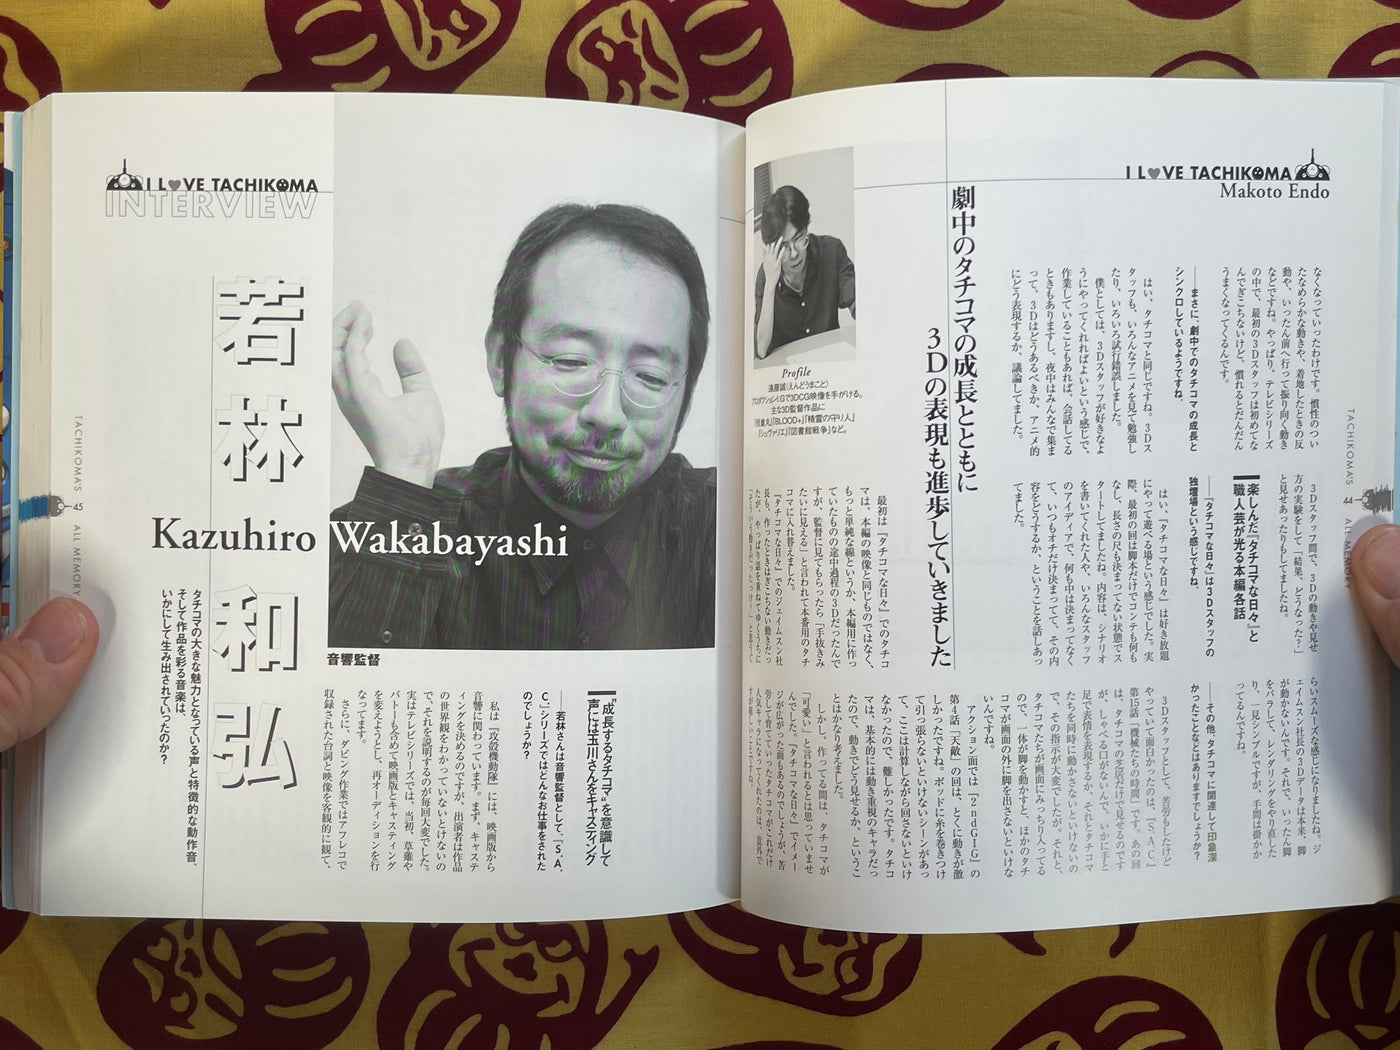 I L♥VE TACHIKOMA
Makoto Endo
なくなっていったわけです。慣性のつい
たなめらかな動きや、着地したときの反
動や、いったん前へ行って振り向く動き
などですね。やっぱり、テレビシリーズ
の中で、最初の3Dスタッフは初めてな
んでぎこちないけど、慣れるとだんだん
うまくなってくるんです。
——まさに、劇中でのタチコマの成長と
シンクロしているようですね。
はい、タチコマと同じですね。3Dス
タッフも、いろんなアニメを見て勉強し
たり、いろいろ試行錯誤しました。
僕としては、3Dスタッフが好きなよ
うにやってくれればよいという感じで、
作業していることもあれば、会話してる
ときもありますし、夜中はみんなで集ま
って、3Dはどうあるべきか、アニメ的
にどう表現するか、議論してました。
3Dスタッフ間で、3Dの動きや見せ
方の実験をして「結果、どうなった?」
と見せあったりもしてましたね。
楽しんだ『タチコマな日々』と
職人芸が光る本編各話
——『タチコマな日々』は3Dスタッフの
独壇場という感じですね。
はい、『タチコマな日々』は好き放題
にやって遊べる場という感じでした。実
際、最初の回は脚本だけでコンテも何も
なし、長さの尺も決まってない状態でス
タートしてましたね。内容は、シナリオ
を書いてくれた人や、いろんなスタッフ
のアイディアで、何も中は決まってなく
て、いつもオチだけ決まってて、その内
容をどうするか、ということを話しあっ
てました。
劇中のタチコマの成長とともに
3Dの表現も進歩していきました
Profile
遠藤誠(えんどうまこと)
プロダクションI.Gで3DCG映像を手がける。
主な3D監督作品に
『BLOOD+』『精霊の守り人』
『シュヴァリエ』『図書館戦争』など。
最初は『タチコマな日々』でのタチコ
マは、本編の映像と同じものではなく、
もっと単純な線というか、本編用に作っ
ていたものの途中過程の3Dだったんで
すが、監督に見てもらったら「手抜きみ
たいに見える」と言われて本番用のタチ
コマに入れ替えました。
『タチコマな日々』でのジェイムスン社
長も、作ったときはぎこちない動きだっ
たが、やっぱり話を重ねてゆくうちに
らいスムーズな感じになりましたね。ジ
ェイムスン社長の3Dデータは本来、脚
が動かないんです。それで、いったん脚
をバラして、レンダリングをやり直した
り、一見シンプルですが、手間は掛かか
ってるんですね。
——その他、タチコマに関連して印象深
かったことなどはありますでしょうか?
3Dスタッフとして、苦労もしたけど
やっていて面白かったのは、『S.A.C.』
第15話「機械たちの時間」です。あの回
は、タチコマの芝居だけで見せるのです
が、しゃべる口がないんで、いかに手と
足で表情を表現するか、それとタチコマ
たちを同時に動かさないといけないの
で、その指示が大変でしたが。それと、
タチコマたちが画面にみっちり入ってる
ので、一体が脚を動かすと、ほかのタチ
コマが画面の外に脚を出さないといけな
いんですね。
アクション面では『2ndGIG』の
第4話「天敵」の回は、とくに動きが激
しかったですね。ポッドに糸を巻きつけ
て引っ張らないといけないシーンがあっ
て、ここは計算しながら回さないといけ
なかったので、難しかったです。タチコ
マは、基本的には動き重視のキャラだっ
たので、動きでどう見せるか、というこ
とはかなり考えました。
しかし、作ってる間は、タチコマが
「可愛い」と言われるとは思っていませ
んでした。『タチコマな日々』でイメー
ジが広がった面もあるのでしょうが、苦
労して育てていったタチコマがこれだけ
人気キャラになってくれたのは、意外で
すが嬉しいことですね。
TACHIKOMA'S
44
ALL MEMORY
I L♥VE TACHIKOMA
INTERVIEW
若林和弘
Kazuhiro Wakabayashi
音響監督
タチコマの大きな魅力となっている声と特徴的な動作音、
そして作品を彩る音楽は、
いかにして生み出されていったのか?
“成長するタチコマ”を意識して
声には玉川さんをキャスティング
——若林さんは音響監督として、『S.A.
C.』シリーズではどんなお仕事をされた
のでしょうか?
私は『攻殻機動隊』には、映画版から
音響に関わっています。まず、キャステ
ィングを決めるのですが、出演者は作品
の世界観をわかっていないといけないの
で、それを説明するのが毎回大変でした。
実はテレビシリーズでは、当初、草薙や
バトーも含めて映画版とキャスティング
を変えようとし、再オーディションを行
なってます。
さらに、ダビング作業ではアフレコで
収録された台詞と映像を客観的に観て、
TACHIKOMA'S
45
ALL MEMORY